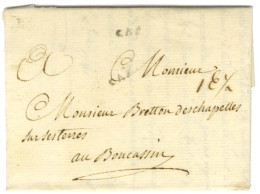 A Monsieur
Monsieur Bretton deschapelles
sur ses terres
au Boucassin